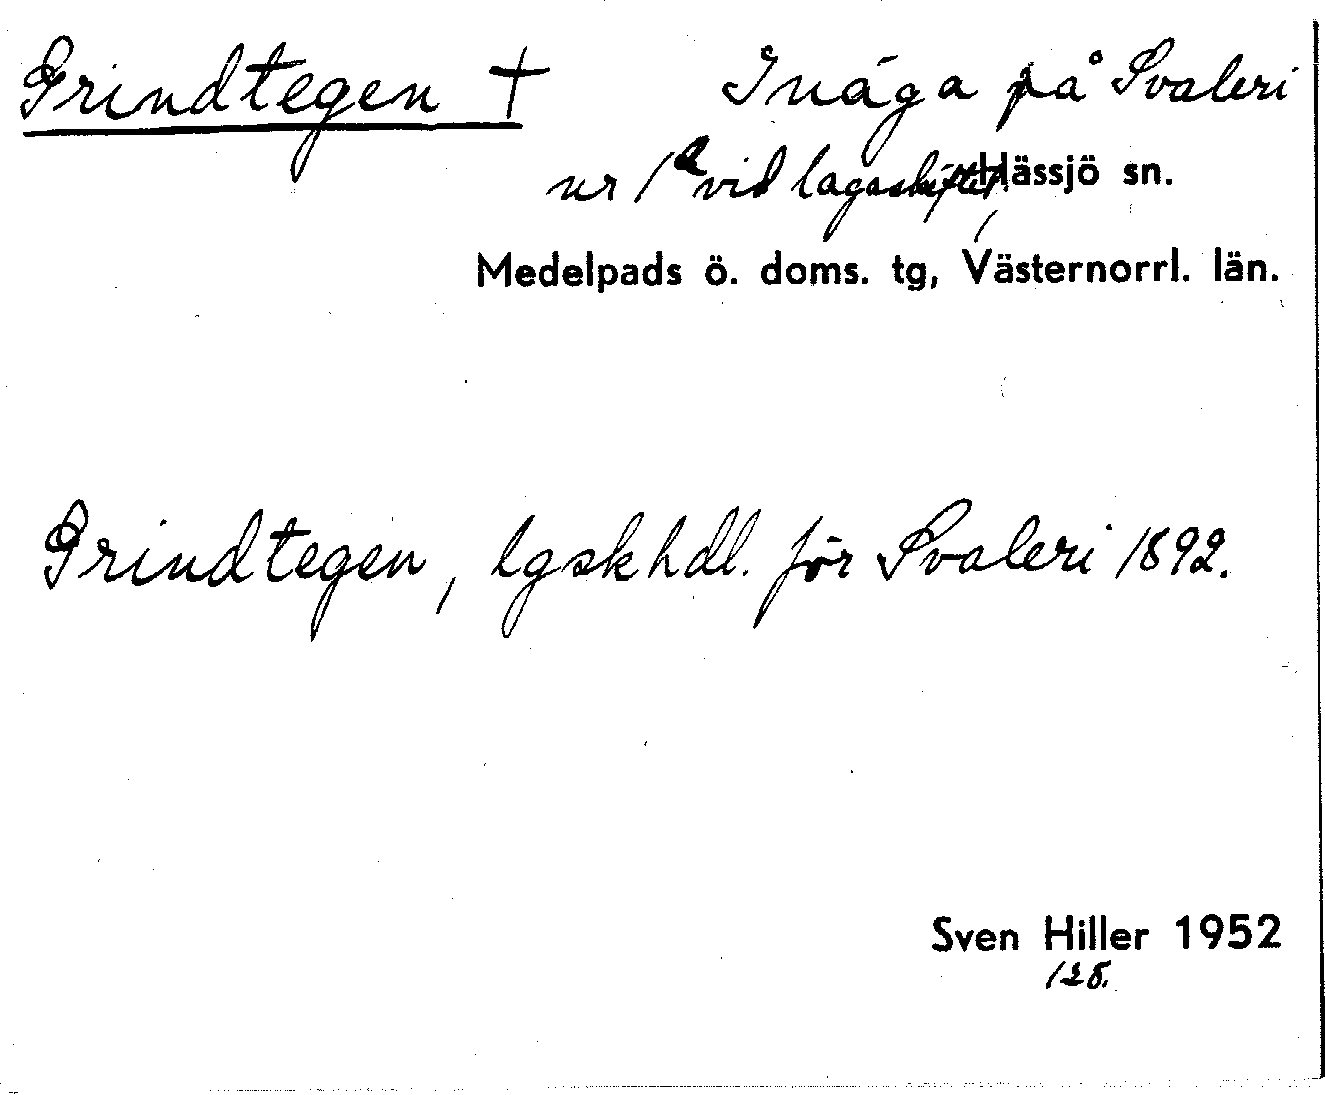 Grindtegen † Inäga på Svaleri
nr 1ª vid lagaskiftet, Hässjö sn.
Medelpads ö. doms. tg, Västernorrl. län.
Grindtegen, lgskhdl. för Svaleri 1892.
Sven Hiller 1952